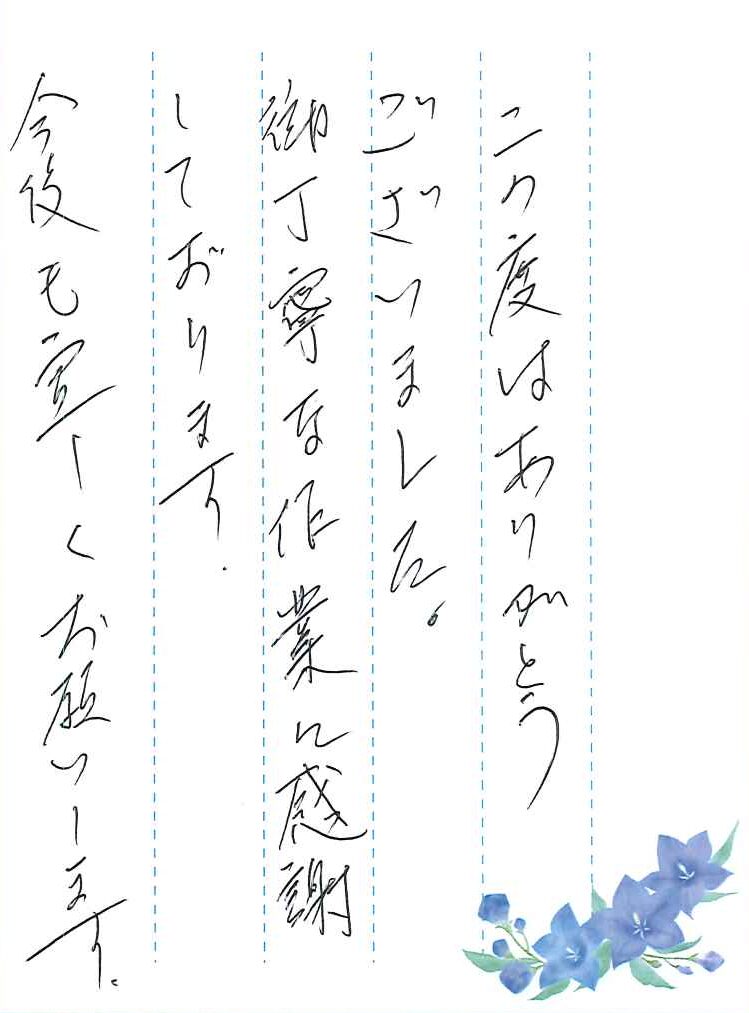 この度はありがとう
ございました。
御丁寧な作業に感謝
しております.
今後も宜しくお願いします.